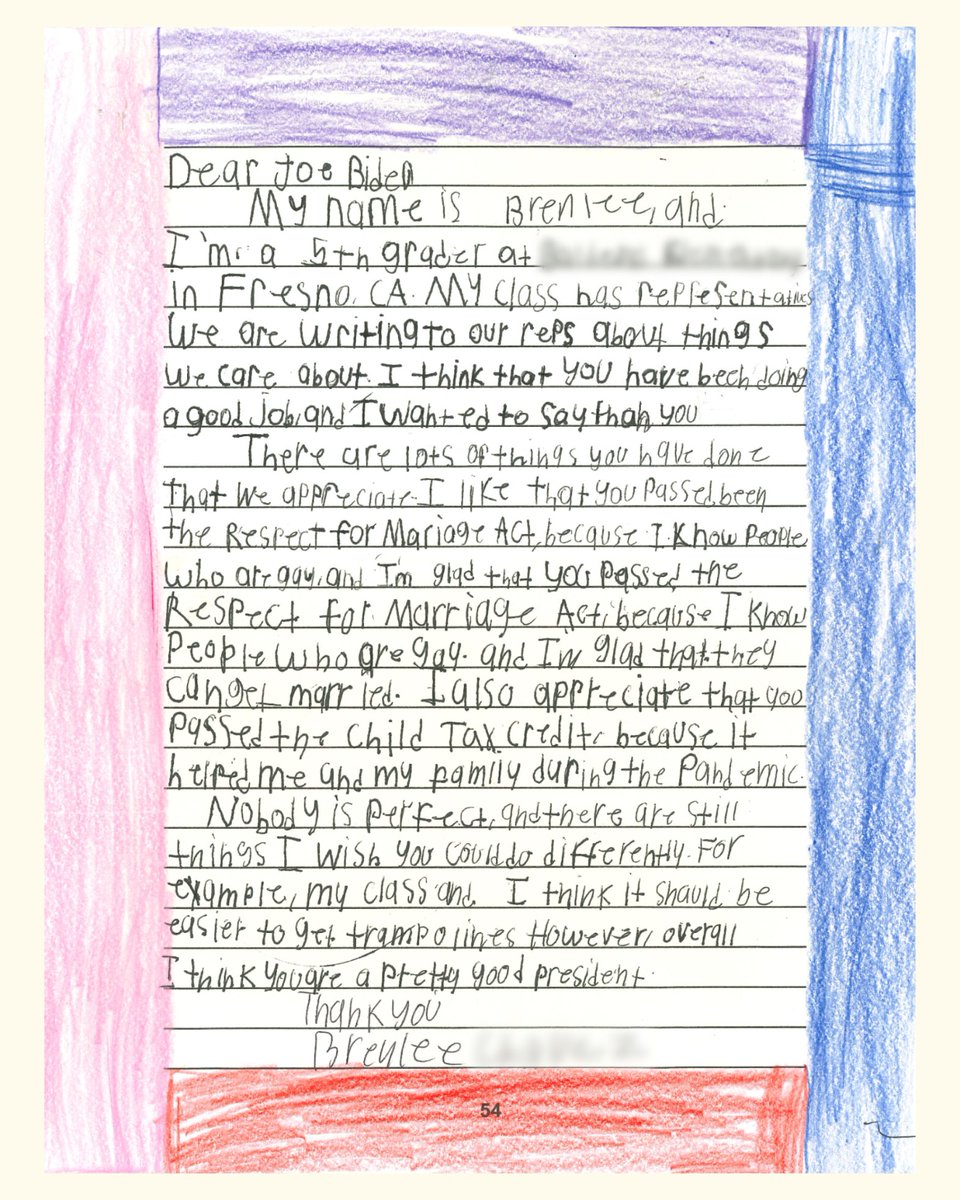 Dear Joe Biden
My name is Brenlee, and
I'm a 5th grader at
in Fresno, CA. My class has representatives
We are writing to our reps about things
we care about. I think that you have been doing
a good job, and I wanted to say thank you
There are lots of things you have done
that we appreciate. I like that you passed been
the Respect for Mariage Act, because I know people
who are gay, and I'm glad that you passed the
Respect for Marriage Act, because I know
People who are gay. and I'm glad that they
can get married. I also appreciate that you
passed the Child Tax Credit, because it
helped me and my pamily during the Pandemic.
Nobody is perfect, and there are still
things I wish you could do differently. For
example, my class and I think it should be
easier to get trampolines However, overall
I think you are a pretty good president.
Thank you
Brenlee
54